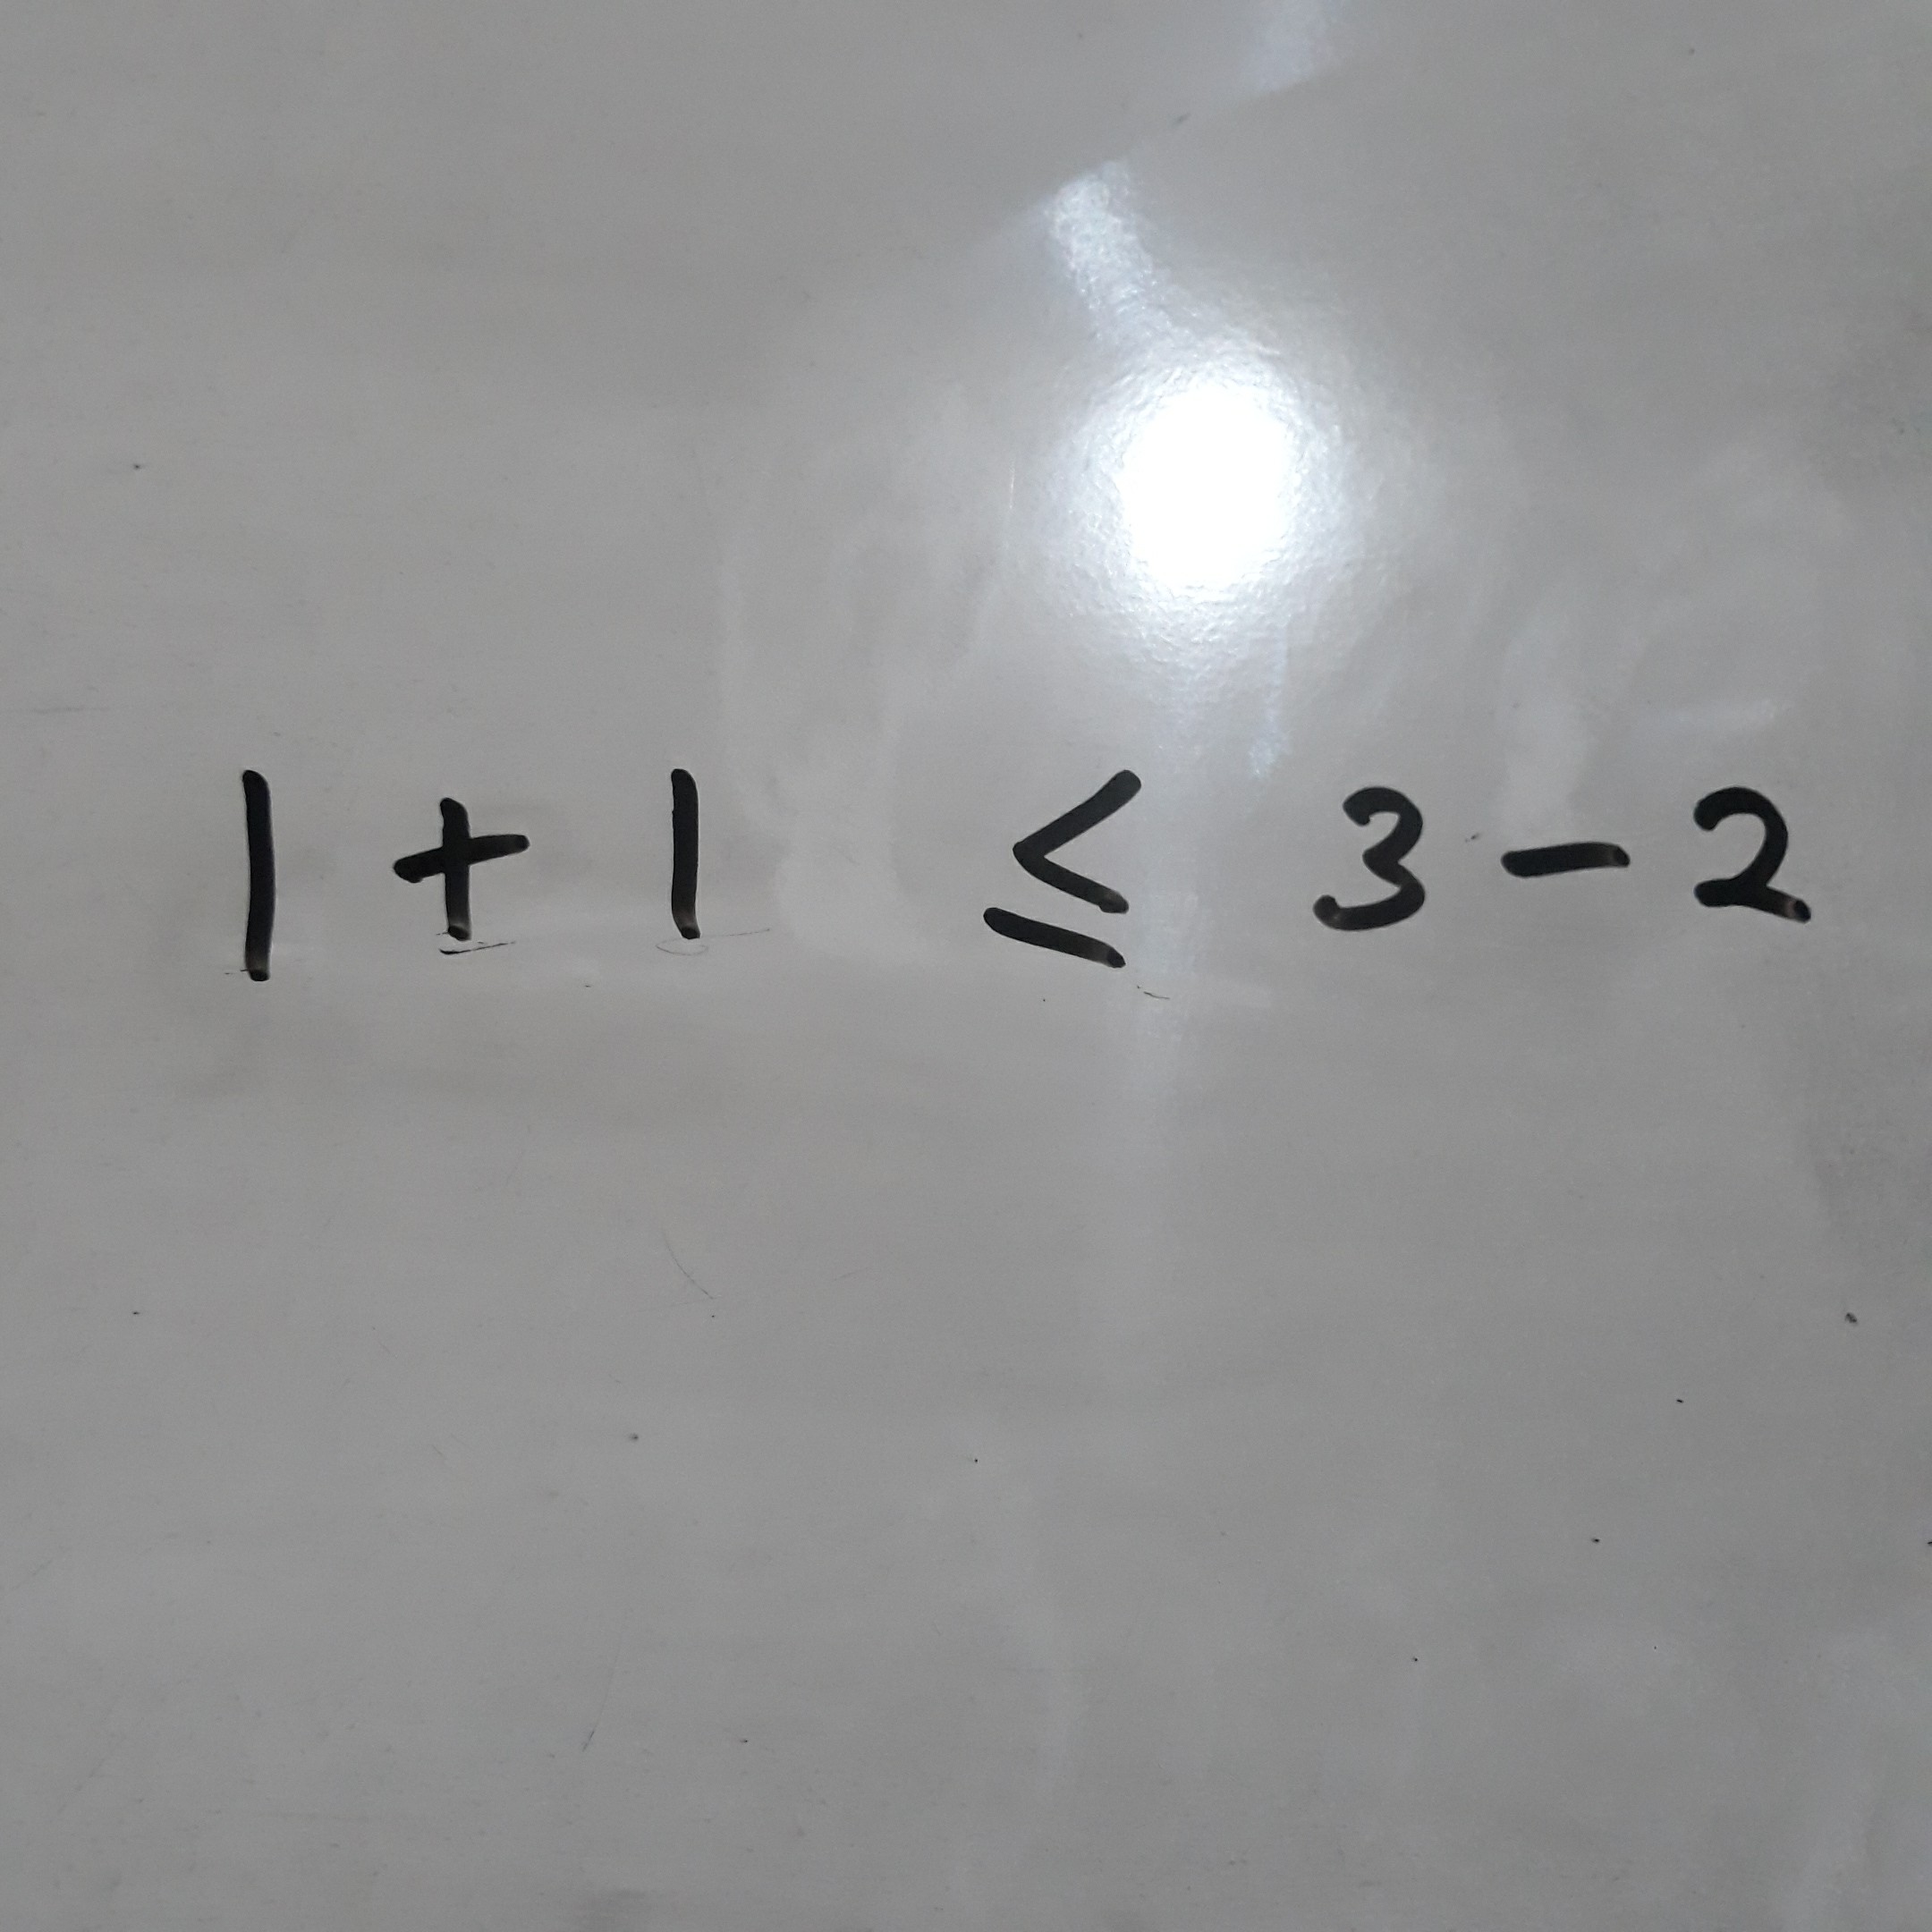 1 + 1 ≤ 3 - 2